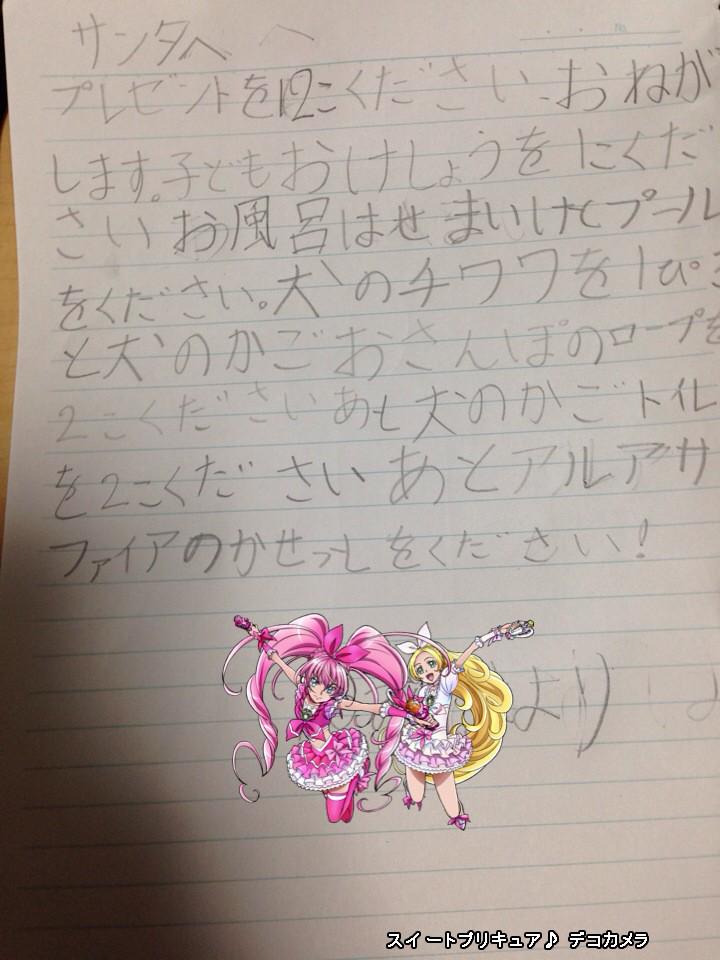 サンタへ
プレゼントを12こください。おねが
します。子どもおけしょうをにくだ
さい お風呂はせまいけどプール
をください。犬のチワワを1ぴき
と犬のかごおさんぽのロープを
2こください あと犬のかごトイレ
を2こください あとアルアサ
ファイアのかせっとをください!
より
スイートプリキュア♪ デコカメラ